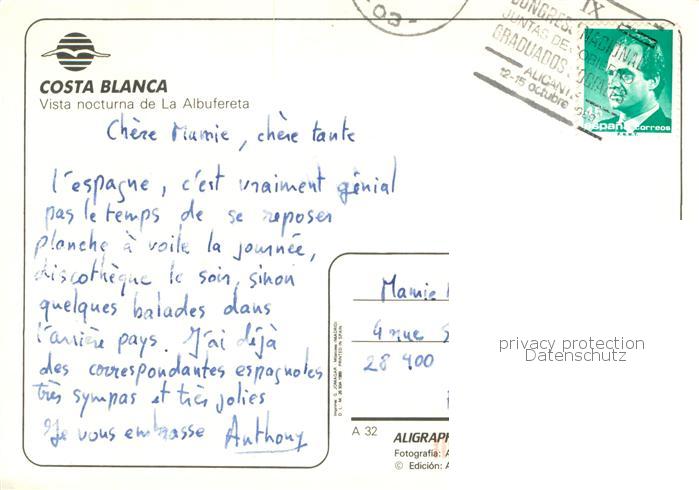 COSTA BLANCA
Vista nocturna de La Albufereta
Chère Mamie, chère tante
l'espagne, c'est vraiment génial
pas le temps de se reposer
planche à voile la journée,
discothèque le soir, sinon
quelques balades dans
l'arrière pays. J'ai déjà
des correspondantes espagnoles
très sympas et très jolies
Je vous embrasse Anthony
03
IX
CONGRESO NACIONAL
GRADUADOS SOCIALES
ALICANTE
12-15 octubre
españa correos
Mamie
4 rue S
28 400
PRINTED IN SPAIN
A 32
ALIGRAPH
Fotografía: A
© Edición: A
privacy protection
Datenschutz